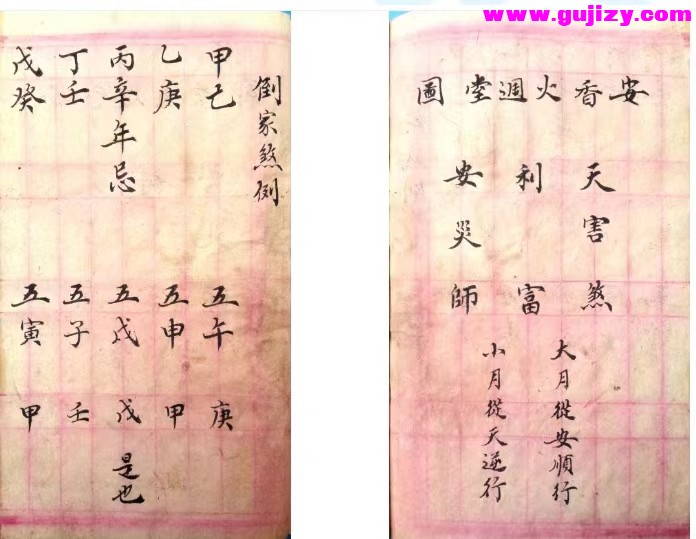 www.gujizy.com
安香火週堂圖
天 利 安
害 災
煞 富 師
大月從安順行
小月從天逆行
倒家煞例
甲己 五午 庚
乙庚 五申 甲
丙辛年忌 五戌 戊 是也
丁壬 五子 壬
戊癸 五寅 甲